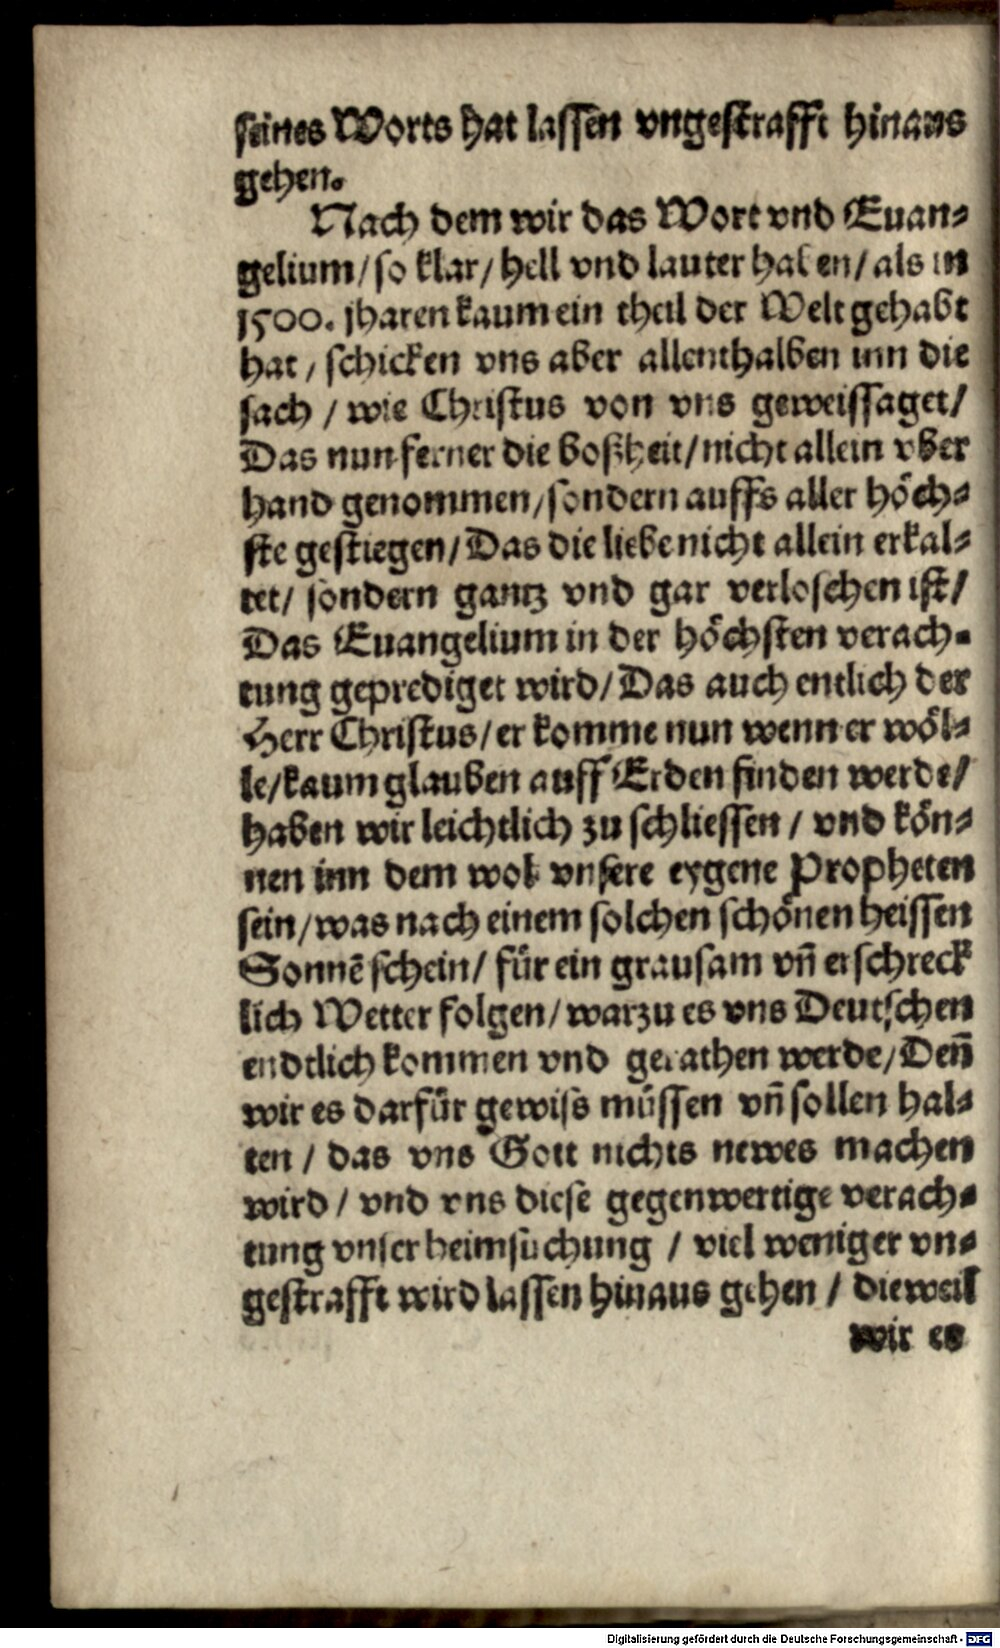 seines Worts hat lassen vngestrafft hinaus
gehen.
Nach dem wir das Wort vnd Euan-
gelium/ so klar/ hell vnd lauter haben/ als in
1500. jharen kaum ein theil der Welt gehabt
hat/ schicken vns aber allenthalben inn die
sach/ wie Christus von vns geweissaget/
Das nun ferner die boßheit/ nicht allein vber
hand genommen/ sondern auffs aller höch-
ste gestiegen/ Das die liebe nicht allein erkal-
tet/ sondern gantz vnd gar verloschen ist/
Das Euangelium in der höchsten verach-
tung geprediget wird/ Das auch entlich der
Herr Christus/ er komme nun wenn er wöl-
le/ kaum glauben auff Erden finden werde/
haben wir leichtlich zu schliessen/ vnd kön-
nen inn dem wol vnsere eygene Propheten
sein/ was nach einem solchen schönen heissen
Sonnē schein/ für ein grausam vñ erschreck
lich Wetter folgen/ warzu es vns Deutschen
endtlich kommen vnd gerathen werde/ Deñ
wir es darfür gewiss müssen vñ sollen hal-
ten/ das vns Gott nichts newes machen
wird/ vnd vns diese gegenwertige verach-
tung vnser heimsuchung/ viel weniger vn-
gestrafft wird lassen hinaus gehen/ dieweil
wir es
Digitalisierung gefördert durch die Deutsche Forschungsgemeinschaft - DFG